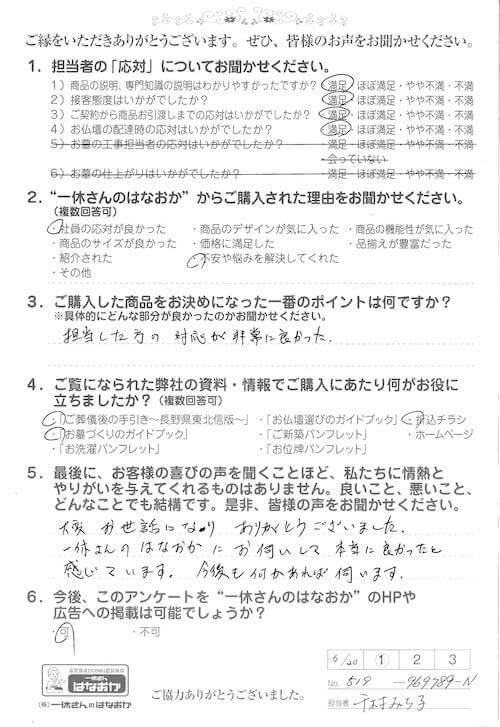 ご縁をいただきありがとうございます。ぜひ、皆様のお声をお聞かせください。
1．担当者の「応対」についてお聞かせください。
1）商品の説明、専門知識の説明はわかりやすかったですか？ 満足・ほぼ満足・やや不満・不満
2）接客態度はいかがでしたか？ 満足・ほぼ満足・やや不満・不満
3）ご契約から商品お引渡しまでの応対はいかがでしたか？ 満足・ほぼ満足・やや不満・不満
4）お仏壇の配達時の応対はいかがでしたか？ 満足・ほぼ満足・やや不満・不満
5）お墓の工事担当者の応対はいかがでしたか？ ・満足・ほぼ満足・やや不満・不満
・会っていない
6）お墓の仕上がりはいかがでしたか？ ・満足・ほぼ満足・やや不満・不満
2．“一休さんのはなおか”からご購入された理由をお聞かせください。
（複数回答可）
・社員の応対が良かった ・商品のデザインが気に入った ・商品の機能性が気に入った
・商品のサイズが良かった ・価格に満足した ・品揃えが豊富だった
・紹介された ・不安や悩みを解決してくれた
・その他
3．ご購入した商品をお決めになった一番のポイントは何ですか？
※具体的にどんな部分が良かったのかお聞かせください。
担当した方の対応が非常に良かった.
4．ご覧になられた弊社の資料・情報でご購入にあたり何がお役に
立ちましたか？（複数回答可）
・「ご葬儀後の手引き〜長野県東北信版〜」 ・「お仏壇選びのガイドブック」 ・折込チラシ
・「お墓づくりのガイドブック」 ・「ご新築パンフレット」 ・ホームページ
・「お洗濯パンフレット」 ・「お位牌パンフレット」
5．最後に、お客様の喜びの声を聞くことほど、私たちに情熱と
やりがいを与えてくれるものはありません。良いこと、悪いこと、
どんなことでも結構です。是非、皆様の声をお聞かせください。
大変お世話になり ありがとうございました.
一休さんのはなおかにお伺いして本当に良かったと
感じています. 今後も何かあれば伺います.
6．今後、このアンケートを“一休さんのはなおか”のHPや
広告への掲載は可能でしょうか？
・可 ・不可
6/20 ① 2 3
No. 619 -969789-N
一休さんの
はなおか
（株）一休さんのはなおか
ご協力ありがとうございました。
担当者